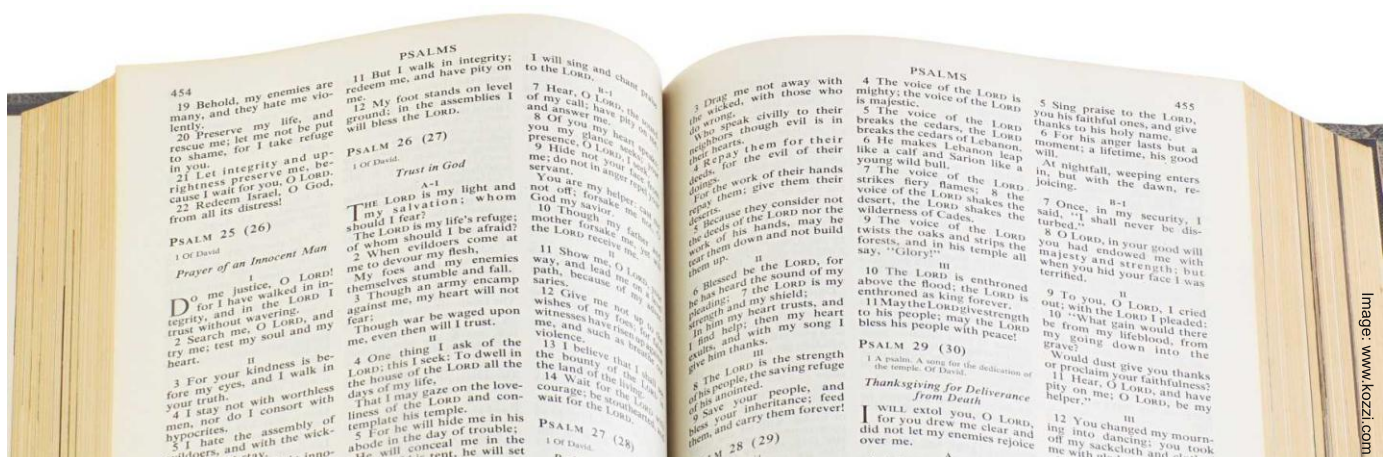 PSALMS
454
19 Behold, my enemies are
many, and they hate me vio-
lently.
20 Preserve my life, and
rescue me; let me not be put
to shame, for I take refuge
in you.
21 Let integrity and up-
rightness preserve me, be-
cause I wait for you, O LORD.
22 Redeem Israel, O God,
from all its distress!
PSALM 25 (26)
1 Of David
Prayer of an Innocent Man
I
Do me justice, O LORD!
for I have walked in in-
tegrity, and in the LORD I
trust without wavering.
2 Search me, O LORD, and
try me; test my soul and my
heart.
II
3 For your kindness is be-
fore my eyes, and I walk in
your truth.
4 I stay not with worthless
men, nor do I consort with
hypocrites.
5 I hate the assembly of
and with the wick-
stay.
11 But I walk in integrity;
redeem me, and have pity on
me.
12 My foot stands on level
ground; in the assemblies I
will bless the LORD.
PSALM 26 (27)
1 Of David.
Trust in God
A-I
THE LORD is my light and
my salvation; whom
should I fear?
The LORD is my life's refuge;
of whom should I be afraid?
2 When evildoers come at
me to devour my flesh,
My foes and my enemies
themselves stumble and fall.
3 Though an army encamp
against me, my heart will not
fear;
Though war be waged upon
me, even then will I trust.
II
4 One thing I ask of the
LORD; this I seek: To dwell in
the house of the LORD all the
days of my life,
That I may gaze on the love-
liness of the LORD and con-
template his temple.
5 For he will hide me in his
abode in the day of trouble;
He will conceal me in the
tent, he will set
I will sing and chant praise
to the LORD.
B-I
7 Hear, O LORD, the sound
of my call; have pity on
and answer me.
8 Of you my heart speaks;
you my glance seeks;
presence, O LORD, I seek.
9 Hide not your face from
me; do not in anger repel your
servant.
You are my helper: cast me
not off; forsake me not,
God my savior.
10 Though my father and
mother forsake me, yet will
the LORD receive me.
II
11 Show me, O LORD, your
way, and lead me on a
path, because of my adver-
saries.
12 Give me not up to the
wishes of my foes; for
witnesses have risen up against
me, and such as breathe
violence.
13 I believe that I shall see
the bounty of the LORD
the land of the living.
14 Wait for the LORD
courage; be stouthearted,
wait for the LORD.
PSALM 27 (28)
1 Of David.
PSALMS
455
3 Drag me not away with
the wicked, with those who
do wrong,
Who speak civilly to their
neighbors though evil is in
their hearts.
4 Repay them for their
deeds, for the evil of their
doings.
For the work of their hands
repay them; give them their
deserts.
5 Because they consider not
the deeds of the LORD nor the
work of his hands, may he
tear them down and not build
them up.
II
6 Blessed be the LORD, for
he has heard the sound of my
pleading; 7 the LORD is my
strength and my shield;
In him my heart trusts, and
I find help; then my heart
exults, and with my song I
give him thanks.
III
8 The LORD is the strength
of his people, the saving refuge
of his anointed.
9 Save your people, and
bless your inheritance; feed
them, and carry them forever!
28 (29)
4 The voice of the LORD is
mighty; the voice of the LORD
is majestic.
5 The voice of the LORD
breaks the cedars, the LORD
breaks the cedars of Lebanon.
6 He makes Lebanon leap
like a calf and Sarion like a
young wild bull.
7 The voice of the LORD
strikes fiery flames; 8 the
voice of the LORD shakes the
desert, the LORD shakes the
wilderness of Cades.
9 The voice of the LORD
twists the oaks and strips the
forests, and in his temple all
say, "Glory!"
III
10 The LORD is enthroned
above the flood; the LORD is
enthroned as king forever.
11 May the LORD give strength
to his people; may the LORD
bless his people with peace!
PSALM 29 (30)
1 A psalm. A song for the dedication of
the temple. Of David.
Thanksgiving for Deliverance
from Death
I WILL extol you, O LORD,
for you drew me clear and
did not let my enemies rejoice
over me.
5 Sing praise to the LORD,
you his faithful ones, and give
thanks to his holy name.
6 For his anger lasts but a
moment; a lifetime, his good
will.
At nightfall, weeping enters
in, but with the dawn, re-
joicing.
B-I
7 Once, in my security, I
said, "I shall never be dis-
turbed."
8 O LORD, in your good will
you had endowed me with
majesty and strength; but
when you hid your face I was
terrified.
II
9 To you, O LORD, I cried
out; with the LORD I pleaded:
10 "What gain would there
be from my lifeblood, from
my going down into the
grave?
Would dust give you thanks
or proclaim your faithfulness?
11 Hear, O LORD, and have
pity on me; O LORD, be my
helper."
III
12 You changed my mourn-
ing into dancing; you took
off my sackcloth and
me with
Image: www.kozzi.com